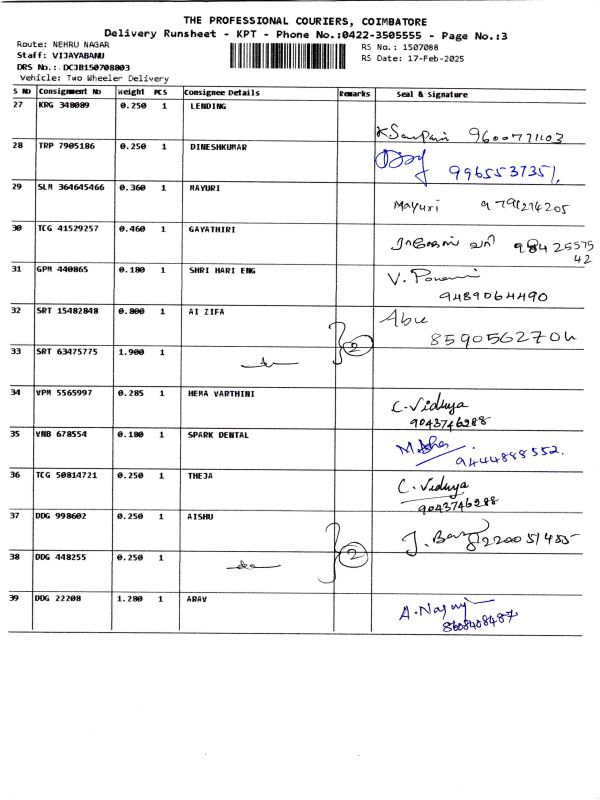 THE PROFESSIONAL COURIERS, COIMBATORE
Delivery Runsheet - KPT - Phone No.:0422-3505555 - Page No.:3
Route: NEHRU NAGAR
RS No.: 1507088
Staff: VIJAYABANU
RS Date: 17-Feb-2025
DRS No.: DCJB150708803
Vehicle: Two Wheeler Delivery
S No Consignment No Weight PCS Consignee Details Remarks Seal & Signature
27 KRG 348089 0.250 1 LENDING
9600771103
28 TRP 7905186 0.250 1 DINESHKUMAR
9965537351
29 SLM 364645466 0.360 1 MAYURI
Mayuri 9791214205
30 TCG 41529257 0.460 1 GAYATHIRI
98425575
42
31 GPM 440865 0.180 1 SHRI HARI ENG
9489064490
32 SRT 15482848 0.800 1 AI ZIFA
8590562704
33 SRT 63475775 1.900 1
2
34 VPM 5565997 0.285 1 HEMA VARTHINI
C. Vidhya
9043746288
35 VNB 678554 0.180 1 SPARK DENTAL
9444888552.
36 TCG 50814721 0.250 1 THEJA
C. Vidhya
9043746288
37 DDG 998602 0.250 1 AISHU
38 DDG 448255 0.250 1
2
39 DDG 22208 1.280 1 ARAV
8608408487